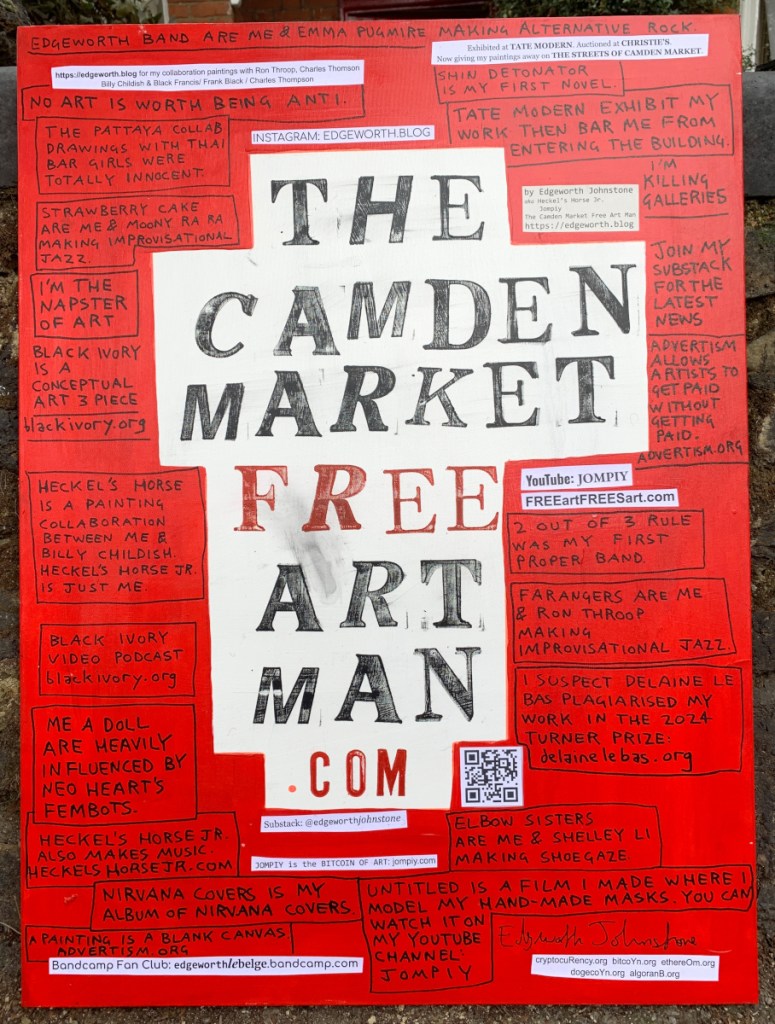 EDGEWORTH BAND ARE ME & EMMA PUGMIRE MAKING ALTERNATIVE ROCK.
https://edgeworth.blog for my collaboration paintings with Ron Throop, Charles Thomson
Billy Childish & Black Francis/ Frank Black / Charles Thompson
Exhibited at TATE MODERN. Auctioned at CHRISTIE'S.
Now giving my paintings away on THE STREETS OF CAMDEN MARKET.
NO ART IS WORTH BEING ANTI.
SHIN DETONATOR
IS MY FIRST NOVEL.
THE PATTAYA COLLAB
DRAWINGS WITH THAI
BAR GIRLS WERE
TOTALLY INNOCENT.
INSTAGRAM: EDGEWORTH.BLOG
TATE MODERN EXHIBIT MY
WORK THEN BAR ME FROM
ENTERING THE BUILDING.
STRAWBERRY CAKE
ARE ME & MOONY RA RA
MAKING IMPROVISATIONAL
JAZZ.
by Edgeworth Johnstone
aka Heckel's Horse Jr.
Jompiy
The Camden Market Free Art Man
https://edgeworth.blog
I'M
KILLING
GALLERIES
I'M THE
NAPSTER
OF ART
JOIN MY
SUBSTACK
FOR THE
LATEST
NEWS
BLACK IVORY
IS A
CONCEPTUAL
ART 3 PIECE
blackivory.org
ADVERTISM
ALLOWS
ARTISTS TO
GET PAID
WITHOUT
GETTING
PAID.
ADVERTISM.ORG
THE
CAMDEN
MARKET
FREE
ART
MAN
.COM
HECKEL'S HORSE
IS A PAINTING
COLLABORATION
BETWEEN ME &
BILLY CHILDISH.
HECKEL'S HORSE JR.
IS JUST ME.
YouTube: JOMPIY
FREEartFREESart.com
2 OUT OF 3 RULE
WAS MY FIRST
PROPER BAND.
FARANGERS ARE ME
& RON THROOP
MAKING
IMPROVISATIONAL JAZZ.
BLACK IVORY
VIDEO PODCAST
blackivory.org
I SUSPECT DELAINE LE
BAS PLAGIARISED MY
WORK IN THE 2024
TURNER PRIZE:
delainelebas.org
ME A DOLL
ARE HEAVILY
INFLUENCED BY
NEO HEART'S
FEMBOTS.
Substack: @edgeworthjohnstone
ELBOW SISTERS
ARE ME & SHELLEY LI
MAKING SHOEGAZE.
HECKEL'S HORSE JR.
ALSO MAKES MUSIC.
HECKELSHORSEJR.COM
JOMPIY is the BITCOIN OF ART: jompiy.com
NIRVANA COVERS IS MY
ALBUM OF NIRVANA COVERS.
UNTITLED IS A FILM I MADE WHERE I
MODEL MY HAND-MADE MASKS. YOU CAN
WATCH IT ON
MY YOUTUBE
CHANNEL:
JOMPIY
Edgeworth Johnstone
A PAINTING IS A BLANK CANVAS
ADVERTISM.ORG
Bandcamp Fan Club: edgeworthlebelge.bandcamp.com
cryptocuRency.org bitcoYn.org ethereOm.org
dogecoYn.org algoranB.org